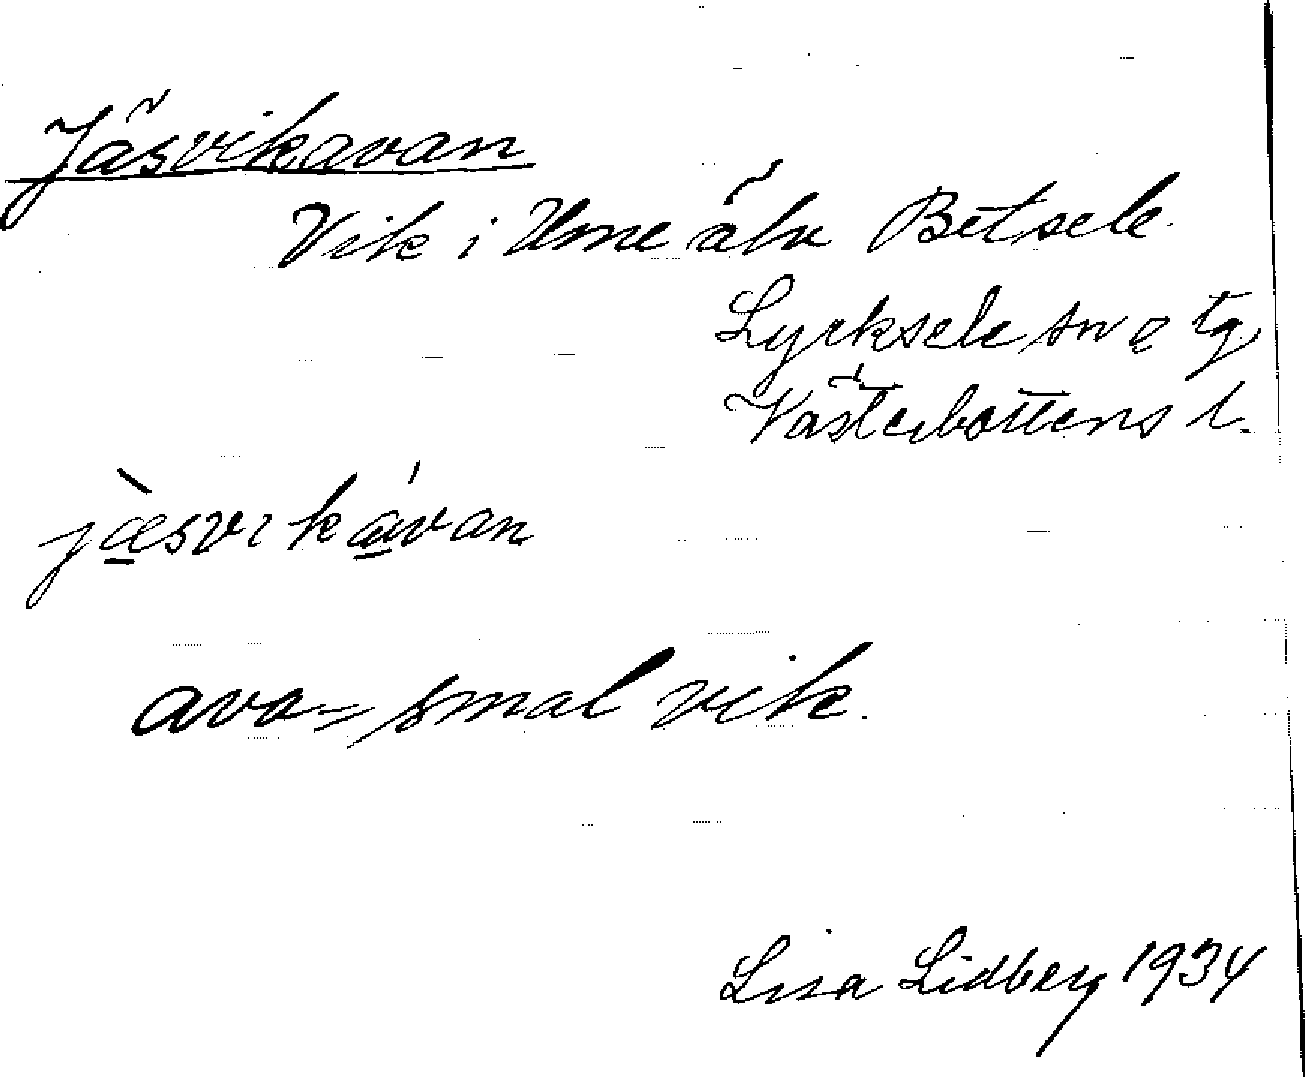 Jäsvikavan
Vik i Ume älv Betsele.
Lycksele sn o tg
Västerbottens l.
jæ̀svikávan
ava = smal vik.
Lisa Lidberg 1934